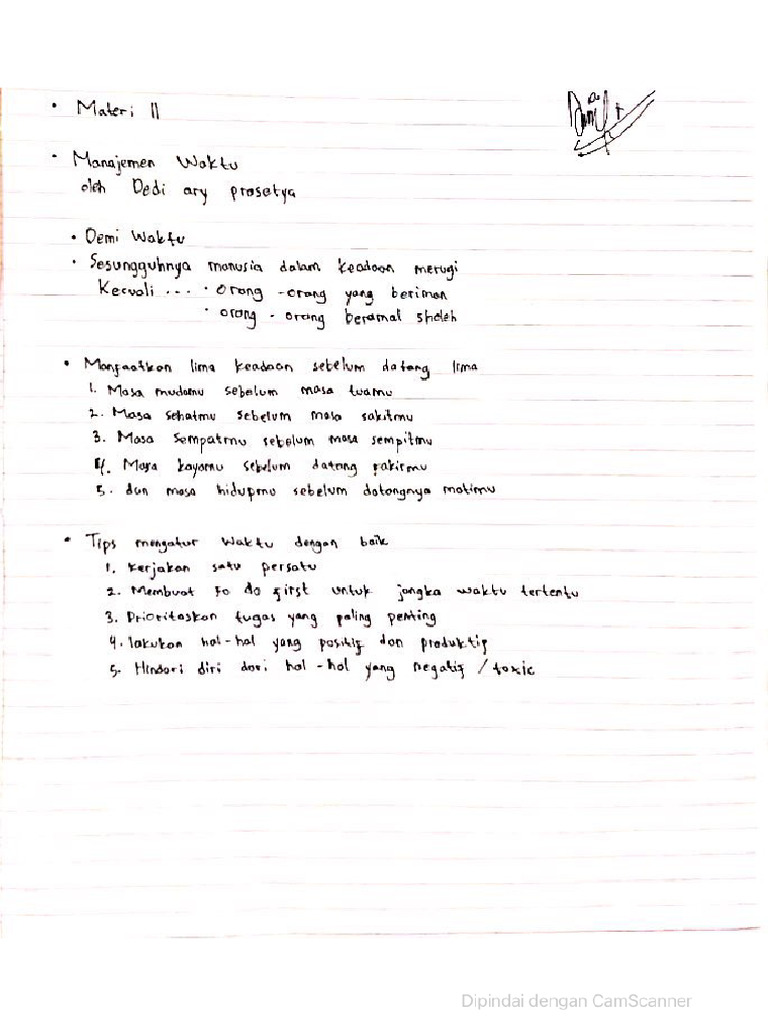 • Materi II
• Manajemen Waktu
oleh Dedi ary prasetya
• Demi Waktu
• Sesungguhnya manusia dalam keadaan merugi
Kecuali ... • Orang - orang yang beriman
• orang - orang beramal sholeh
• Manfaatkan lima keadaan sebelum datang lima
1. Masa mudamu sebelum masa tuamu
2. Masa sehatmu sebelum masa sakitmu
3. Masa Sempatmu sebelum masa sempitmu
4. Masa kayamu sebelum datang fakirmu
5. dan masa hidupmu sebelum datangnya matimu
• Tips mengatur waktu dengan baik
1. Kerjakan satu persatu
2. Membuat Fo do first untuk jangka waktu tertentu
3. Prioritaskan tugas yang paling penting
4. lakukan hal-hal yang positif dan produktif
5. Hindari diri dari hal-hal yang negatif / toxic
Dipindai dengan CamScanner